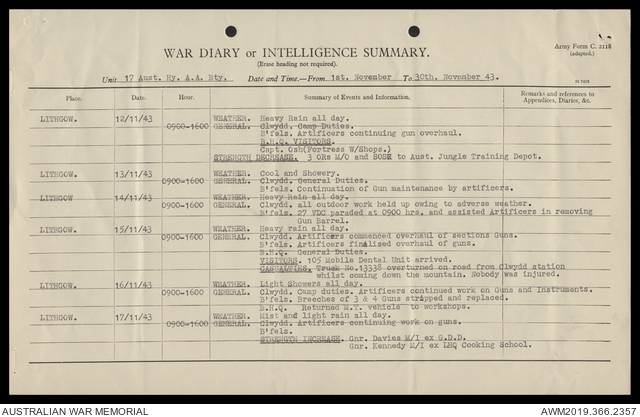 Army Form C. 2118
(adapted.)
WAR DIARY or INTELLIGENCE SUMMARY.
(Erase heading not required).
Unit 17 Aust. Hy. A.A. Bty. Date and Time.—From 1st. November To 30th. November 43.
Place. Date. Hour. Summary of Events and Information. Remarks and references to Appendices, Diaries, &c.
LITHGOW. 12/11/43 WEATHER. Heavy Rain all day.
0900-1600 GENERAL. Clwydd. Camp Duties.
B'fels. Artificers continuing gun overhaul.
B.H.Q. VISITORS.
Capt. Osh(Fortress W/Shops.)
STRENGTH DECREASE. 3 ORs M/O and SOSX to Aust. Jungle Training Depot.
LITHGOW. 13/11/43 WEATHER. Cool and Showery.
0900-1600 GENERAL. Clwydd. General Duties.
B'fels. Continuation of Gun maintenance by artificers.
LITHGOW 14/11/43 WEATHER. Heavy Rain all day.
0900-1600 GENERAL. Clwydd. all outdoor work held up owing to adverse weather.
B'fels. 27 VDC paraded at 0900 hrs. and assisted Artificers in removing
Gun Barrel.
LITHGOW. 15/11/43 WEATHER. Heavy rain all day.
0900-1600 GENERAL. Clwydd. Artificers commenced overhaul of sections Guns.
B'fels. Artificers finalised overhaul of guns.
B.H.Q. General Duties.
VISITORS. 105 Mobile Dental Unit arrived.
CASUALTIES. Truck No.13338 overturned on road from Clwydd station
whilst coming down the mountain. Nobody was injured.
LITHGOW. 16/11/43 WEATHER. Light Showers all day.
0900-1600 GENERAL. Clwydd. Camp duties. Artificers continued work on Guns and Instruments.
B'fels. Breeches of 3 & 4 Guns stripped and replaced.
B.H.Q. Returned M.T. vehicle to workshops.
LITHGOW. 17/11/43 WEATHER. Mist and light rain all day.
0900-1600 GENERAL. Clwydd. Artificers continuing work on guns.
B'fels.
STRENGTH INCREASE. Gnr. Davies M/I ex G.D.D.
Gnr. Kennedy M/I ex LHQ Cooking School.
AUSTRALIAN WAR MEMORIAL
AWM2019.366.2357